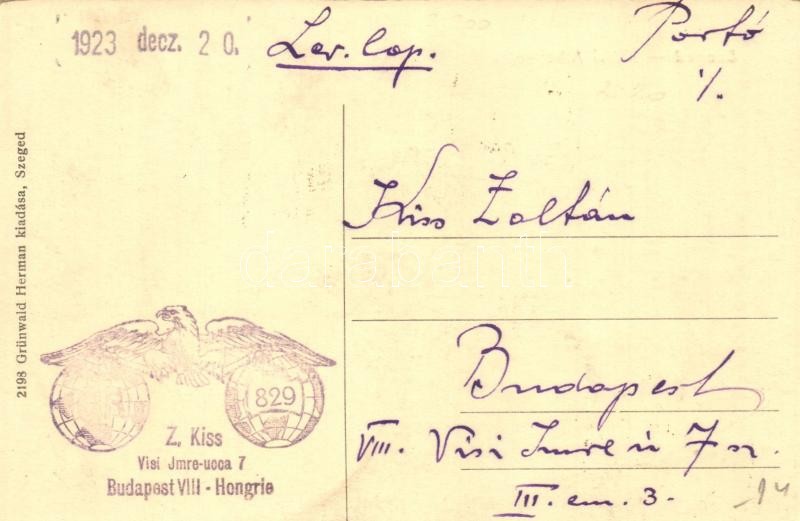 1923 decz. 20.
Lev. lap.
Portó
1/.
2198 Grünwald Herman kiadása, Szeged
Kiss Zoltán
darabanth
Budapest
VIII. Visi Imre u 7 sz.
III. em. 3.
829
Z. Kiss
Visi Jmre-ucca 7
Budapest VIII - Hongrie